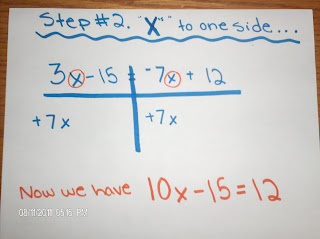 Step #2. "X" to one side...
3x - 15 = -7x + 12
+7x +7x
Now we have 10x - 15 = 12
08/11/2011 05:15 PM